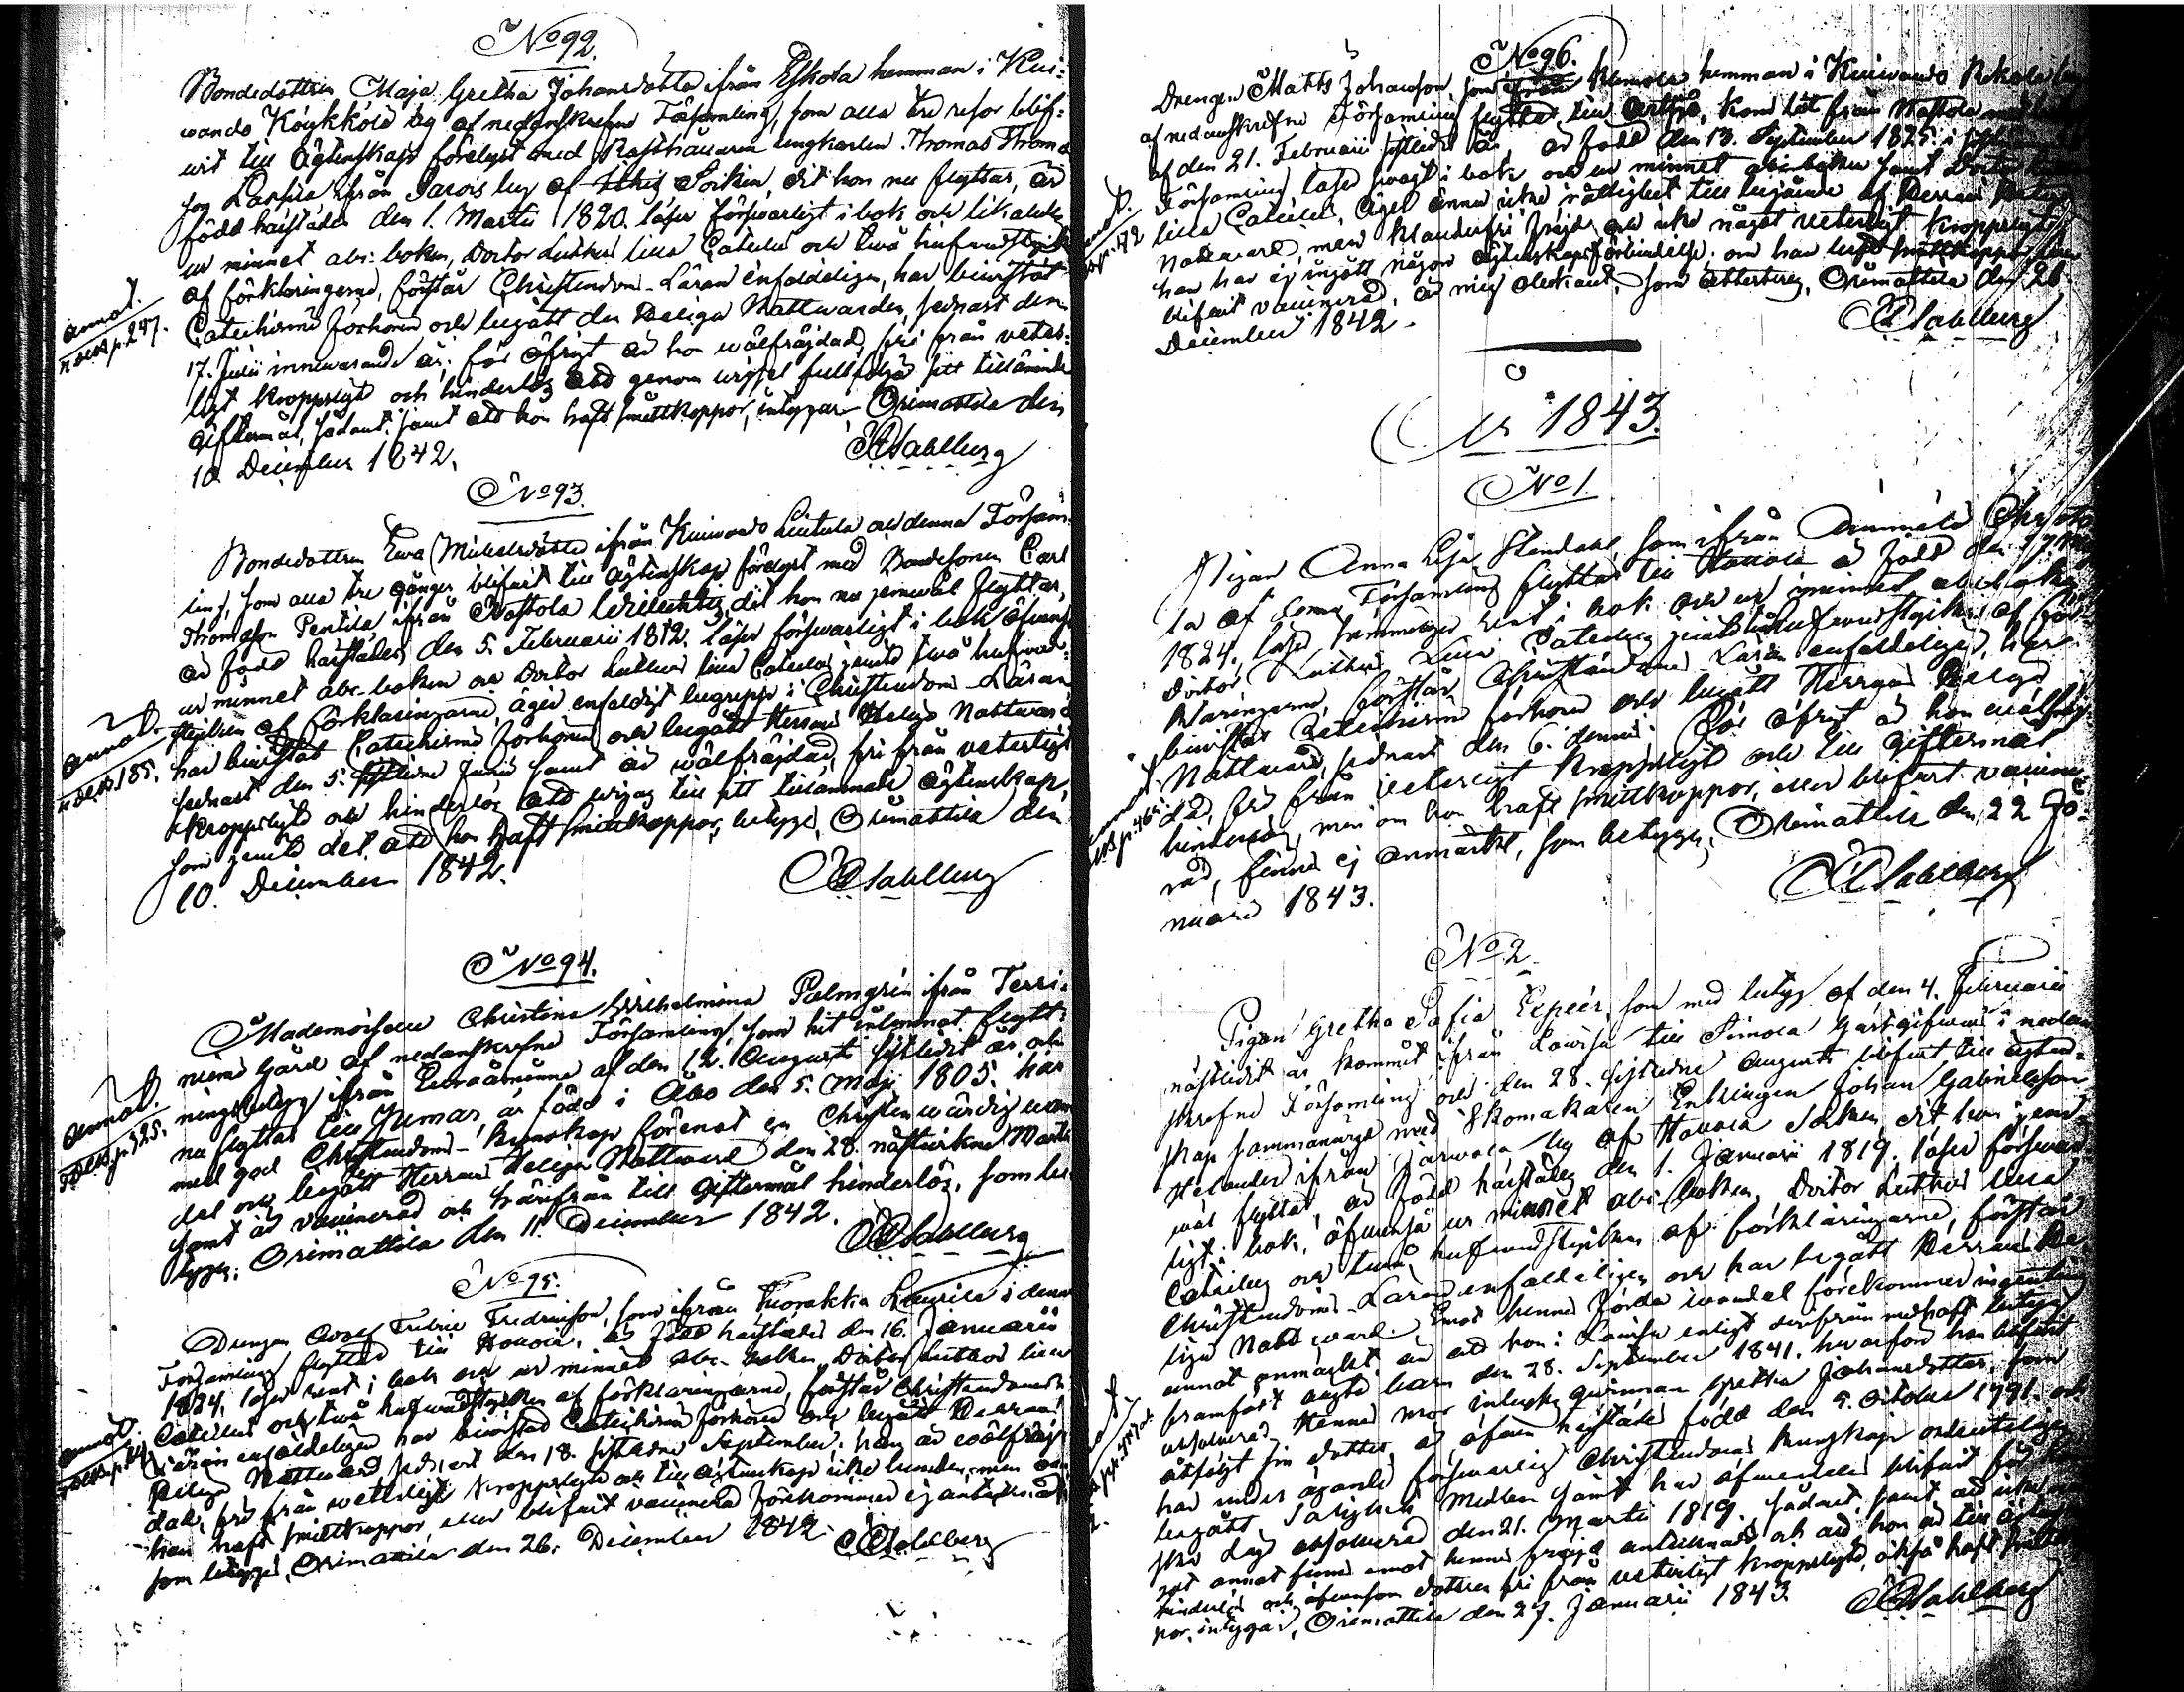 No 92.
Bondedottren Maja Gretha Johansdotter ifrån Eskola hemman i Kui-
wando Köykkölä by af nedanskrefne Församling, som alla tre resor blif-
vit till Ägtenskap förelyst med Rusthållaren ungkarlen Thomas Thomas
son Lassila ifrån Jarois by af Sockn, dit hon nu flyttar, är
född härstädes den 1. Martii 1820. läser försvarligt i bok och likaledes
ur minnet abc-boken, Doctor Luthers lilla Cateches och två hufvudstycken
af förklaringarne, förstår Christendoms-Läran enfaldeligen, har bevistat
Catechismi förhören och begått den Heliga Nattvarden, sednast den
17. Julii innevarande år; för öfrigt är hon wälfräjdad, fri från veter-
ligt kroppslyte och hinderlös att genom wigsel fullfölja sitt tillämnade
Giftermål, sådant, samt att hon haft smittkoppor, intygar Orimattila den
10. December 1842.
Sahlberg
annot.
p. 247.
No 93.
Bondedottren Ewa Michelsdotter ifrån Kuiwando Leutula och denna Försam-
ling, som alla tre gånger blifvit till Ägtenskap förelyst med Bondesonen Carl
Thomasson Pentila ifrån Nastola dit hon nu jemwäl flyttar,
är född härstädes den 5. Februarii 1812. läser försvarligt i bok äfvensom
ur minnet abc-boken och Doctor Luthers lilla Cateches jemte två hufvud-
stycken af förklaringarne, äger enfaldigt begrepp i Christendoms-Läran,
har bevistat Catechismi förhören och begått Herrans Heliga Nattvard
sednast den 5. sistledne Junii samt är wälfräjdad, fri från veterligt
kroppslyte och hinderlös att wigas till sitt tillämnade Ägtenskap,
som jemte det, att hon haft smittkoppor, betygar, Orimattila den
10. December 1842.
Sahlberg
annot.
p. 185.
No 94.
Mademoiselle Christina Wilhelmina Palmgrén ifrån Terri-
niemi Gård af nedanskrefne Församling, som hit inlemnat flytt-
ningsbetyg ifrån Euraåminne af den 12. Augusti sistledit år och
nu flyttar till Jumas, är född i Åbo den 5. Maji 1805. har
med god Christendoms-kunskap förenat en Christen wärdig wan-
del och begått Herrans Heliga Nattvard den 28. nästwikne Martii
samt är vaccinerad och härifrån till Giftermål hinderlös, som be-
tygas; Orimattila den 11. December 1842.
Sahlberg
annot.
p. 325.
No 95.
Drengen Adolf Fredric Fredricsson, som ifrån Tuorakka Laurila i denna
Församling flyttar till Hollola, är född härstädes den 16. Januarii
1824, läser rent i bok och ur minnet abc-boken, Doctor Luthers lilla
Cateches och två hufvudstycken af förklaringarne, förstår Christendoms-
Läran enfaldeligen har bevistat Catechismi förhören och begått Herrans
Heliga Nattvard sednast den 18. sistledne September; han är wälfräj-
dad, fri från wetterligt kroppslyte och till Ägtenskap icke bunden, men om
han haft smittkoppor, eller blifvit vaccinerad förekommer ej antecknadt,
som betygas, Orimattila den 26. December 1842.
Sahlberg
annot.
No 96.
Drengen Matts Johansson, som Hemola hemman i Kuiwando Rekola by
af nedanskrefne Församling flyttar till Artsjö, kom hit från Nastola med
af den 21. Februarii sistledit år, är född den 13. September 1825. i
Församling, läser svagt i bok och ur minnet abc-boken samt Doctor
lilla Cateches, äger ännu icke rättighet till begående af Herrans Heliga
Nattvard, men klanderfri fräjd och icke något veterligt kroppslyte
han har ej ingått någon ägtenskapsförbindelse; om han haft smittkoppor eller
blifvit vaccinerad, är mig obekant, som attesteras, Orimattila den 26.
December 1842.
Sahlberg
År 1843.
No 1.
Pigan Anna Lisa Stendahl, som ifrån
la af denna Församling flyttar till Hollola är född den 17.
1824, läser temmeligen rent i bok och ur minnet abc-boken
Doctor Luthers lilla Cateches jemte två hufvudstycken af för-
klaringarne, förstår Christendoms-Läran enfaldeligen, har
bevistat Catechismi förhören och begått Herrans Heliga
Nattvard, sednast den 6. dennes. För öfrigt är hon wälfräj-
dad, fri från veterligt kroppslyte och till Giftermål
hinderlös, men om hon haft smittkoppor, eller blifvit vaccine-
rad, finnes ej anmärkt, som betygas, Orimattila den 22 Ja-
nuarii 1843.
Sahlberg
No 2.
Pigan Gretha Sofia Lepeér, som med betyg af den 4. Februarii
nästledit år kommit ifrån Lowisa till Simola Gästgifveri i nedan-
skrefne Församling och den 28. sistledne Augusti blifvit till ägten-
skap sammanvigd med Skomakaren Enklingen Johan Gabrielsson
Helander ifrån Jarwala by af Hollola Sockn, dit hon jem-
wäl flyttat, är född härstädes den 1. Januarii 1819. läser försvar-
ligt i bok, äfvenså ur minnet abc-boken, Doctor Luthers lilla
Cateches och två hufvudstycken af förklaringarne, förstår
Christendoms-Läran enfaldeligen och har begått Herrans He-
liga Nattvard. Emot hennes förda wandel förekommer ingenting
annat anmärkt, än att hon i Lowisa enligt derifrån medhaft betyg
framfödt oägta barn den 28. September 1841. hvarföre hon blifvit
absolverad. Hennes mor inhyses qvinnan Gretha Johansdotter, som
åtföljt sin dotter, är äfven härstädes född den 5. October 1791. och
har under ägande försvarlig Christendoms kunskap ordentligen
begått Salighets Medlen samt har äfwenledes blifvit för
dags absolverad den 21. Martii 1819. sådant, samt att icke nå-
got annat finnes emot hennes fräjd antecknadt och att hon är till ägtenskap
hinderlös och äfvensom dottren fri från veterligt kroppslyte, också haft smittkop-
por, intygar, Orimattila den 27. Januarii 1843.
Sahlberg